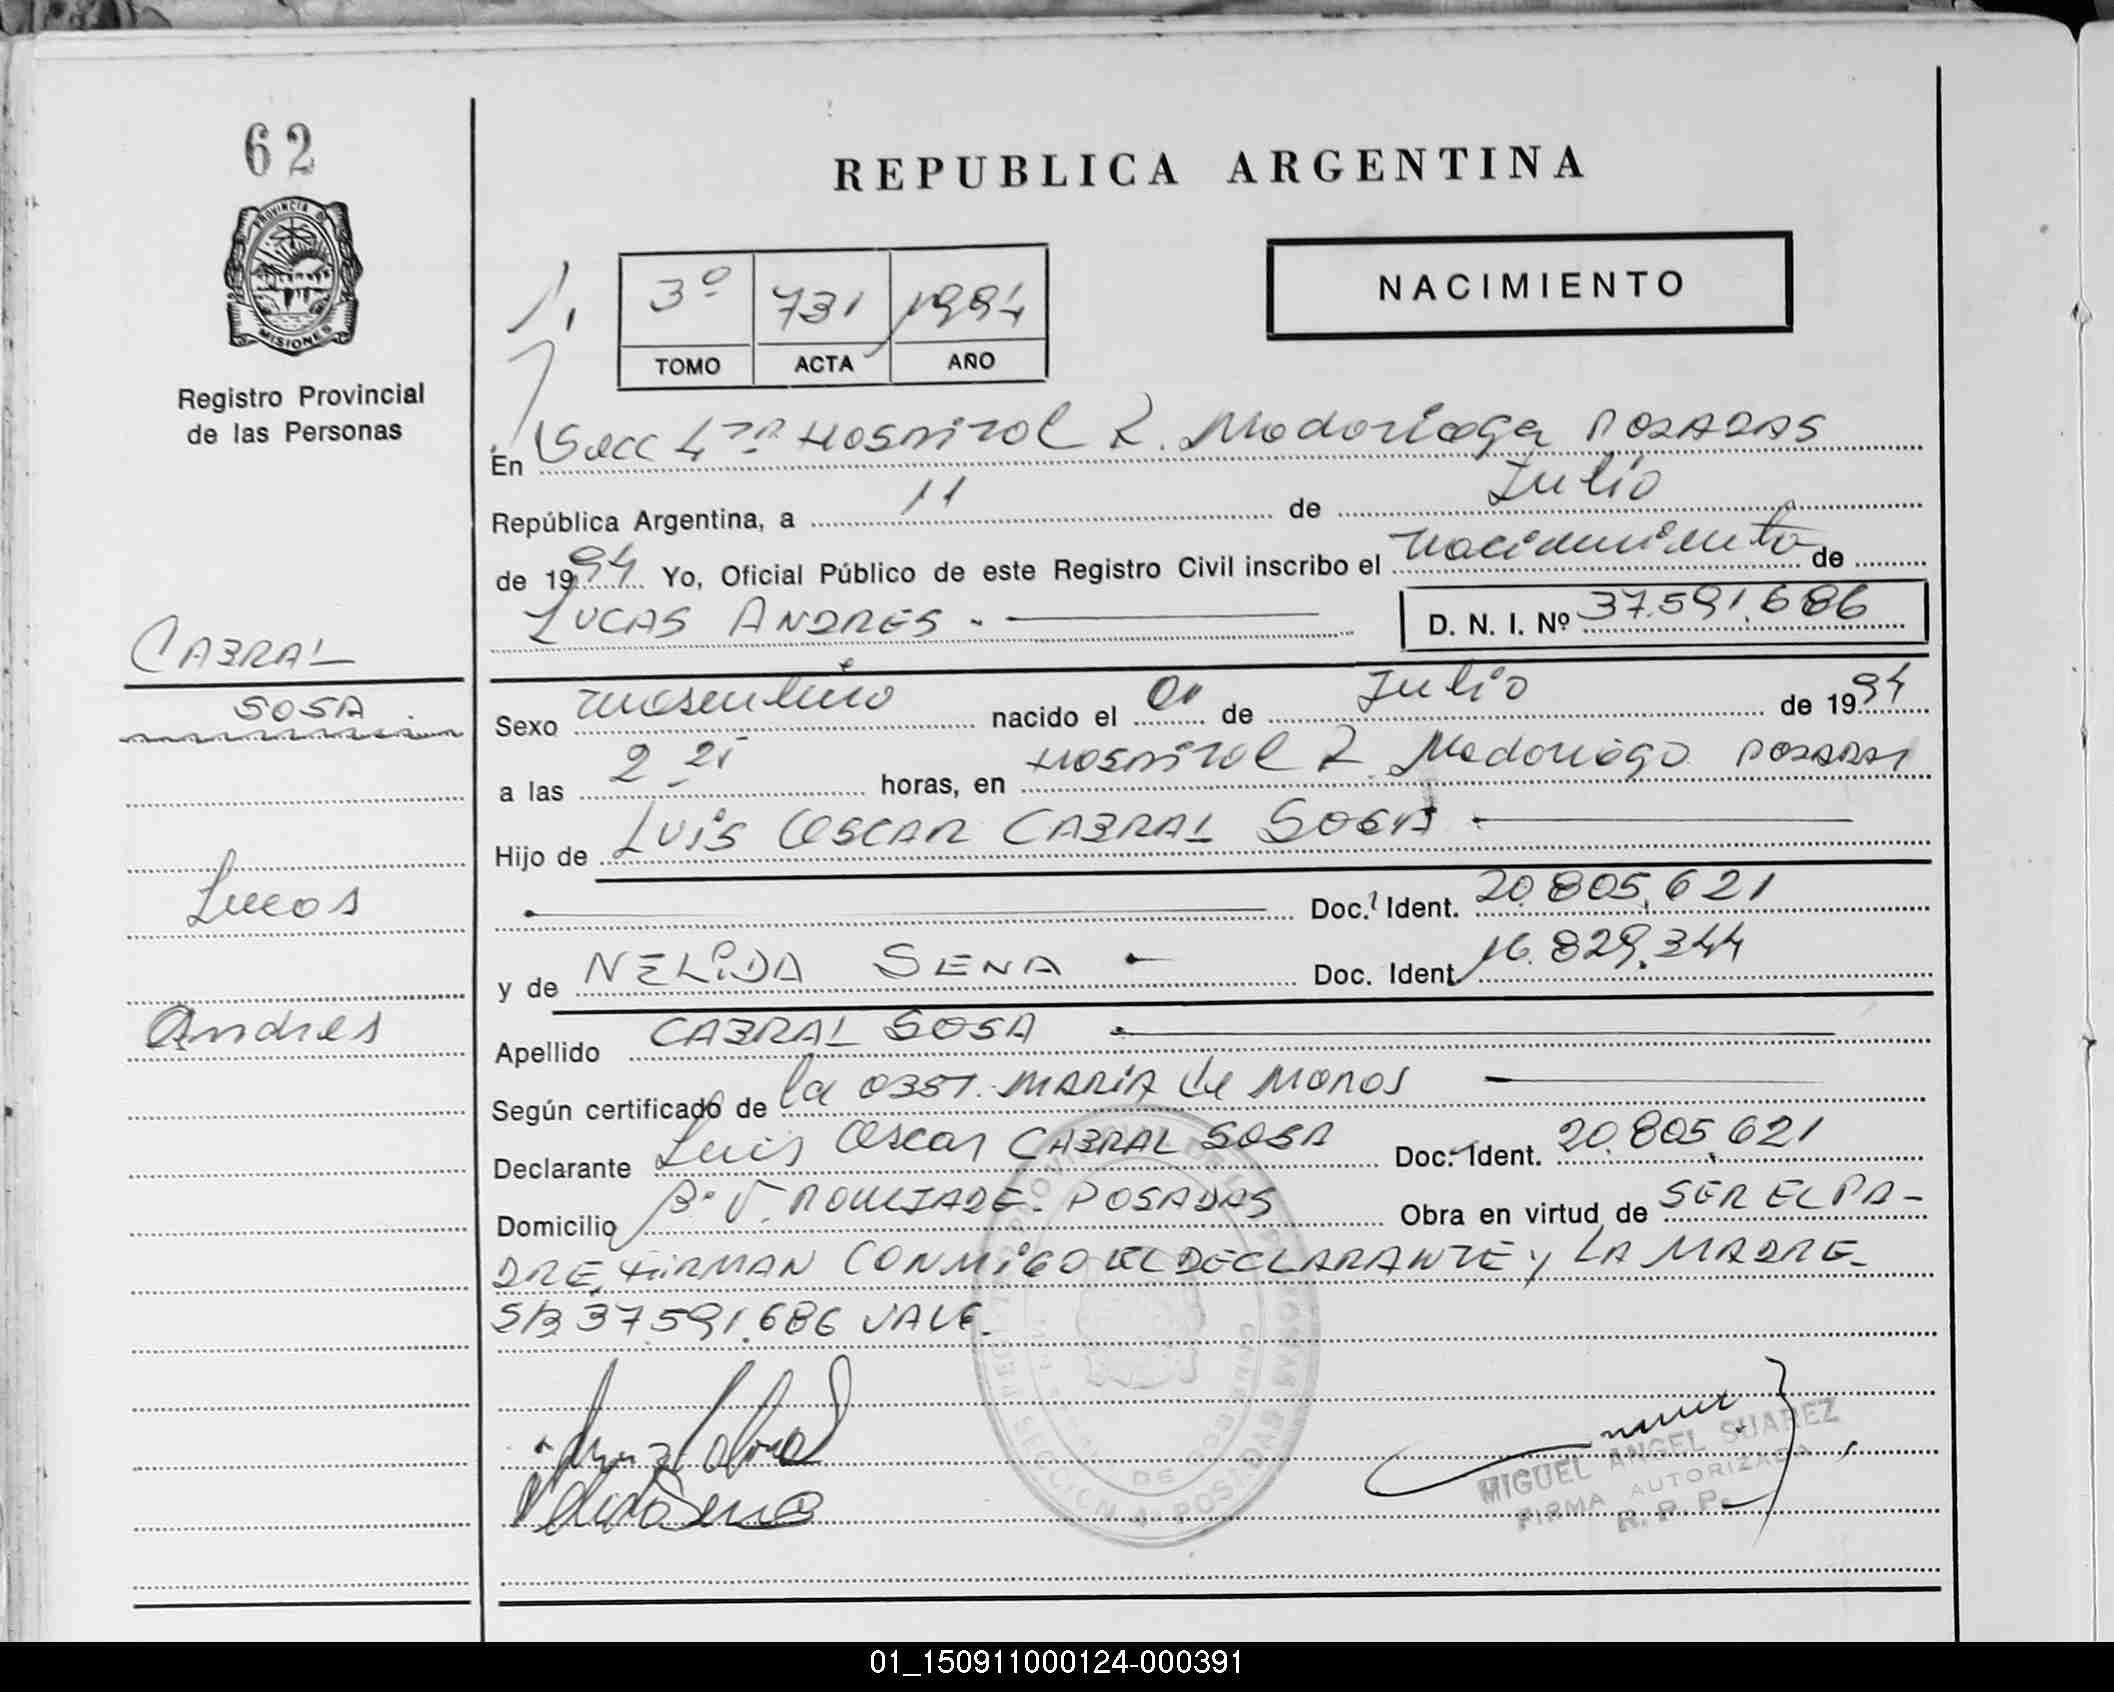 62
PROVINCIA DE
MISIONES
Registro Provincial
de las Personas
REPUBLICA ARGENTINA
NACIMIENTO
3º 731 1994
TOMO ACTA AÑO
En Secc 4ta Hospital R. Madariaga POSADAS
República Argentina, a 11 de Julio
de 1994 Yo, Oficial Público de este Registro Civil inscribo el nacimiento de
LUCAS ANDRES.- D. N. I. Nº 37.591.686
CABRAL
SOSA
Lucas
Andres
Sexo masculino nacido el 01 de Julio de 1994
a las 2 21 horas, en Hospital R. Madariaga POSADAS
Hijo de LUIS OSCAR CABRAL SOSA
Doc. Ident. 20.805.621
y de NELIDA SENA Doc. Ident 16.829.344
Apellido CABRAL SOSA
Según certificado de la OBST. MARIA de
Declarante Luis Oscar CABRAL SOSA Doc. Ident. 20.805.621
Domicilio Bº V. POSADAS Obra en virtud de SER EL PA-
DRE, FIRMAN CONMIGO EL DECLARANTE y LA MADRE-
S/B 37.591.686 VALE.
Nelida Sena
MIGUEL ANGEL SUAREZ
FIRMA AUTORIZADA
R. P. P.
SECCION 4 POSADAS
01_150911000124-000391